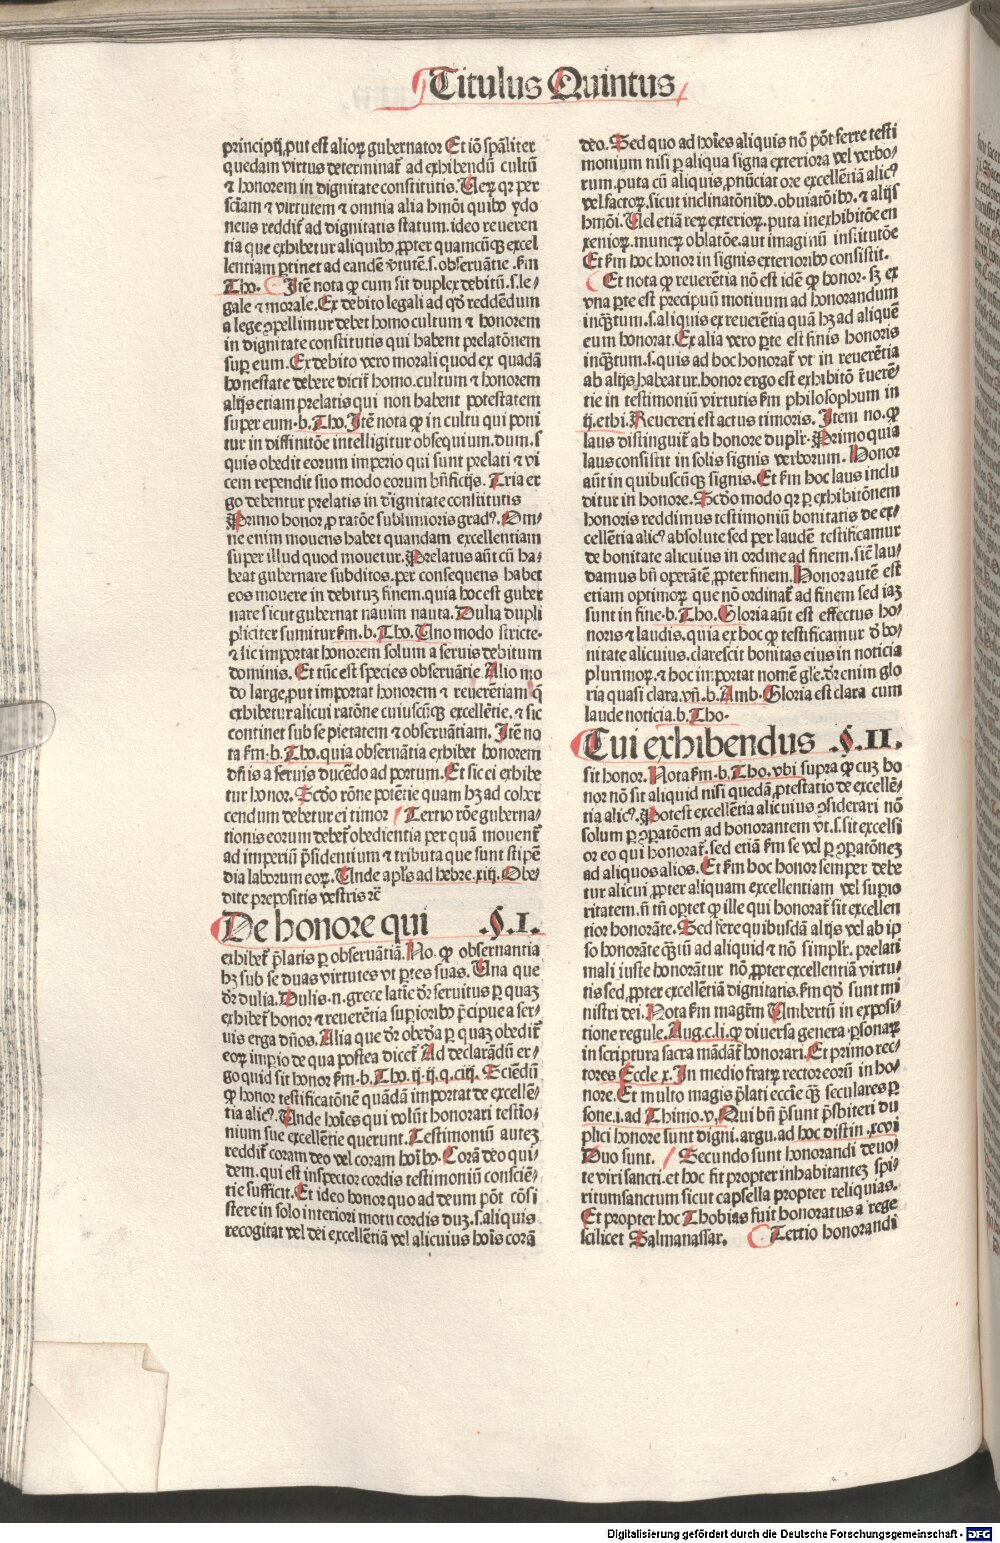 Titulus Quintus
principijp̱ put est alioꝝ gubernator Et iō sp̄aliter
quedam virtus determinat᷑ ad exhibendū cultū
⁊ honorem in dignitate constitutis. Ueꝝ qꝛ per
sciam ⁊ virtutem ⁊ omnia alia hmōi quibꝰ ydo
neus reddit᷑ ad dignitatis statum. ideo reueren
tia que exhibetur aliquibꝰ ꝓpter quamcūqꝫ excel
lentiam ꝑtinet ad eandē ꝟtutē .s. obseruātie. ẜm
Tho. Itē nota ꝙ cum sit duplex debitū .s. le-
gale ⁊ morale. Ex debito legali ad qd̓ reddēdum
a lege ꝯpellimur debet homo cultum ⁊ honorem
in dignitate constitutis qui habent prelatōnem
suꝑ eum. Ex debito vero morali quod ex quadā
honestate debere dicit᷑ homo. cultum ⁊ honorem
alijs etiam prelatis qui non habent potestatem
super eum .b. Tho. Itē nota ꝙ in cultu qui poni
tur in diffinitōe intelligitur obsequium. dum .s
quis obedit eorum imperio qui sunt prelati ⁊ vi
cem rependit suo modo eorum bn̄ficijs. Tria er
go debentur prelatis in dignitate constitutis
Primo honor ꝓ ratōe sublimioris gradꝰ. Om-
ne enim mouens habet quandam excellentiam
super illud quod mouetur. Prelatus aūt cū ha-
beat gubernare subditos. per consequens habet
eos mouere in debitūꝫ finem. quia hoc est guber
nare sicut gubernat nauim nauta. Dulia dupli
pliciter sumitur ẜm .b. Tho. Uno modo stricte.
⁊ sic importat honorem solum a seruis debitum
dominis. Et tūc est species obseruātie Alio mo
do large, put importat honorem ⁊ reuerētiam q̄
exhibetur alicui ratōne cuiuscūqꝫ excellētie. ⁊ sic
continet sub se pietatem ⁊ obseruātiam. Itē no
ta ẜm .b. Tho. quia obseruātia exhibet honorem
dn̄is a seruis ducēdo ad portum. Et sic ei exhibe
tur honor. Scdo rōne potētie quam hꝫ ad coher
cendum debetur ei timor Tertio rōe guberna-
tionis eorum debet᷑ obedientia per quā mouent᷑
ad imperiū p̄sidentium ⁊ tributa que sunt stipē
dia laborum eoꝝ. Unde apl̓s ad hebre. xiij. Obe
dite prepositis vestris ꝛc̄
De honore qui .§.I.
exhibet᷑ p̄latis ꝑ obseruātiā. No. ꝙ obseruantia
hꝫ sub se duas virtutes vt ꝑtes suas. Una que
dr̄ dulia. Dulis .n. grece latīe dr̄ seruitus ꝑ quaꝫ
exhibet᷑ honor ⁊ reuerētia suꝑioribꝰ p̄cipue a ser-
uis erga dn̄os. Alia que dr̄ obedīa ꝑ quaꝫ obedit᷑
eoꝝ imꝑio de qua postea dicet᷑ Ad declarādū er-
go quid sit honor ẜm .b. Tho. ij. ij. q. ciij. Sciēdū
ꝙ honor testificatōnē quādā importat de excellē-
tia alicꝰ. Unde hoīes qui volūt honorari testīo-
nium sue excellētie querunt. Testimoniū auteꝫ
reddit᷑ coram deo vel coram hoībꝰ. Corā deo qui-
dem. qui est inspector cordis testimoniū consciē-
tie sufficit. Et ideo honor quo ad deum pōt cōsi
stere in solo interiori motu cordis duꝫ .s. aliquis
recogitat vel dei excellētiā vel alicuius hoīs corā
deo. Sed quo ad hoīes aliquis nō pōt ferre testi
monium nisi ꝑ aliqua signa exteriora vel verbo-
rum. puta cū aliquis ꝓnūciat ore excellētiā alicꝰ
vel factoꝝ. sicut inclinatōnibꝰ. obuiatōibꝰ. ⁊ alijs
hmōi. Uel etiā reꝝ exterioꝝ. puta in exhibitōe en
xenioꝝ. muneꝝ oblatōe. aut imaginū institutōe
Et ẜm hoc honor in signis exterioribꝰ consistit.
Et nota ꝙ reuerētia nō est idē ꝙ honor. sꝫ ex
vna ꝑte est precipuū motiuum ad honorandum
inqꝫtum .s. aliquis ex reuerētia quā hꝫ ad aliquē
eum honorat. Ex alia vero ꝑte est finis honoris
inqꝫtum .s. quis ad hoc honorat᷑ vt in reuerētia
ab alijs habeatur. honor ergo est exhibitō reuerē-
tie in testimoniū virtutis ẜm philosophum in
ij. ethi. Reuereri est actus timoris. Item no. ꝙ
laus distinguit᷑ ab honore duplr̄. Primo quia
laus consistit in solis signis verborum. Honor
aūt in quibuscūqꝫ signis. Et ẜm hoc laus inclu
ditur in honore. Scdō modo qꝛ ꝑ exhibitōnem
honoris reddimus testimoniū bonitatis de ex-
cellētia alicꝰ absolute sed per laudē testificamur
de bonitate alicuius in ordine ad finem. sicē lau-
damus bn̄ operātē ꝓpter finem. Honor autē est
etiam optimoꝝ que nō ordinat᷑ ad finem sed iaꝫ
sunt in fine .b. Tho. Gloria aūt est effectus ho-
noris ⁊ laudis. quia ex hoc ꝙ testificamur d̓ bo-
nitate alicuius. clarescit bonitas eius in noticia
plurimoꝝ. ⁊ hoc importat nomē gl̓e. dr̄ enim glo
ria quasi clara. vn̄ .b. Amb. Gloria est clara cum
laude noticia .b. Tho.
Cui exhibendus .§.II.
sit honor. Nota ẜm .b. Tho. vbi supra ꝙ cuꝫ ho
nor nō sit aliquid nisi quedā ꝓtestatio de excellē-
tia alicꝰ. Potest excellētia alicuius ꝯsiderari nō
solum ꝑ ꝯꝑatōem ad honorantem vt .s. sit excelsi
or eo qui honorat᷑. sed etiā ẜm se vel ꝑ ꝯꝑatōneꝫ
ad aliquos alios. Et ẜm hoc honor semper debe
tur alicui ꝓpter aliquam excellentiam vel suꝑio
ritatem. n̄ tn̄ oꝑtet ꝙ ille qui honorat᷑ sit excellen
tior honorāte. Sed fere quibusdā alijs vel ab ip
so honorāte qꝫtū ad aliquid ⁊ nō simplr̄. prelati
mali iuste honorātur nō ꝓpter excellentiā virtu-
tis sed ꝓpter excellētiā dignitatis. ẜm qd̓ sunt mi
nistri dei. Nota ẜm magr̄m Umbertū in exposi-
tione regule. Aug. c. li. ꝙ diuersa genera ꝑsonaꝝ
in scriptura sacra mādāt᷑ honorari. Et primo rec-
tores Eccle x. In medio fratꝝ rector eorū in ho-
nore. Et multo magis p̄lati eccīe qꝫ seculares ꝑ
sone. i. ad Thimo. v. Qui bn̄ p̄sunt p̄sbiteri du
plici honore sunt digni. argu. ad hoc distin. xcvi
Duo sunt. Secundo sunt honorandi deuo-
te viri sancti. et hoc fit propter inhabitanteꝫ spi-
ritumsanctum sicut capsella propter reliquias.
Et propter hoc Thobias fuit honoratus a rege
scilicet Salmanassar. Tertio honorandi
Digitalisierung gefördert durch die Deutsche Forschungsgemeinschaft - DFG